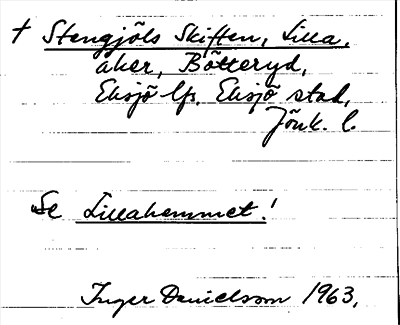 † Stengjöls Skiften, Lilla,
åker, Bötteryd,
Eksjö lfs. Eksjö stad,
Jönk. l.
Se Lillahemmet!
Inger Danielsson 1963.